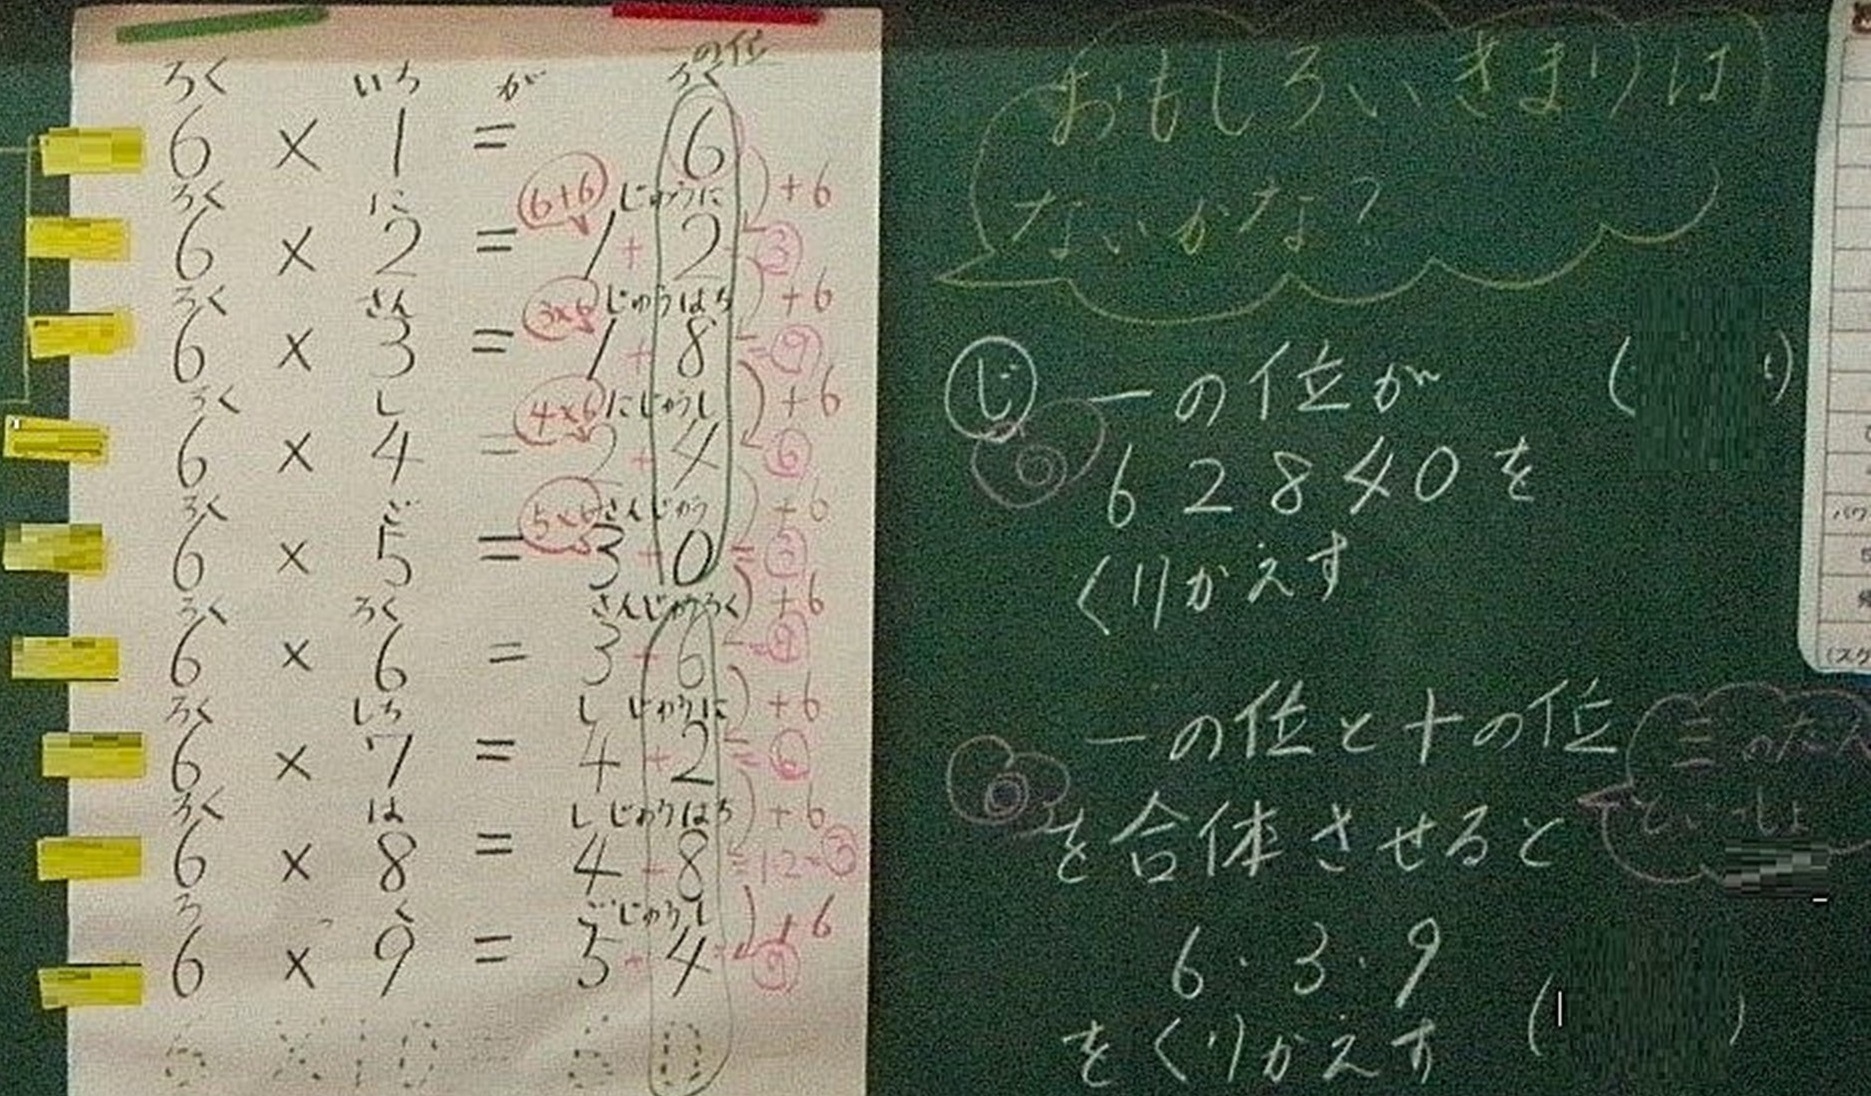 の位
ろく いち が ろく
6 × 1 = 6
+6
ろく に じゅうに
6 × 2 = 1 + 2 ③
6+6
+6
ろく さん じゅうはち
6 × 3 = 1 + 8 = ⑨
3×6
+6
ろく し にじゅうし
6 × 4 = 2 + 4 ⑥
4×6
+6
ろく ご さんじゅう
6 × 5 = 3 + 0 = ③
5×6
+6
ろく ろく さんじゅうろく
6 × 6 = 3 + 6 = ⑨
+6
ろく しち しじゅうに
6 × 7 = 4 + 2 = ⑥
+6
ろく は しじゅうはち
6 × 8 = 4 + 8 = 12 → ③
+6
ろっ く ごじゅうし
6 × 9 = 5 + 4 ⑨
6 × 10 = 60
おもしろいきまりは
ないかな?
じ 一の位が
6 2 8 4 0 を
くりかえす
一の位と十の位
を合体させると
6・3・9
をくりかえす